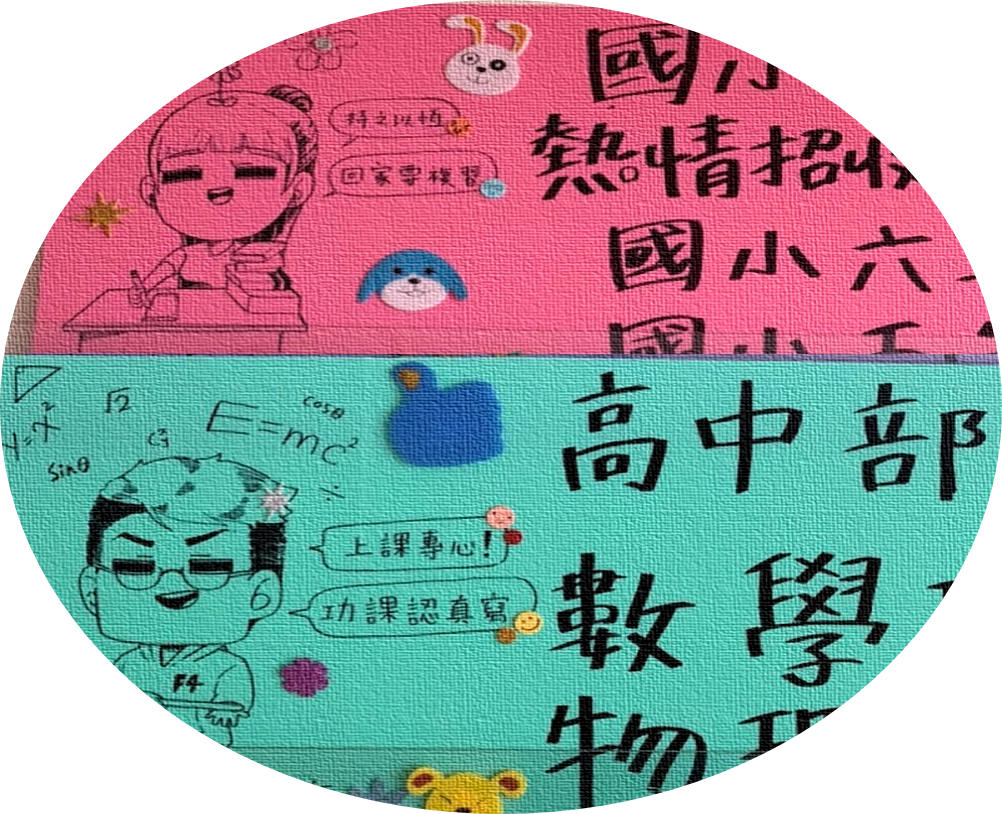 持之以恆
回家要複習
國小
熱情招收
國小六
國小五
√2
cosθ
E=mc²
y=x²
sinθ
÷
上課專心!
功課認真寫
F4
高中部
數學
物理